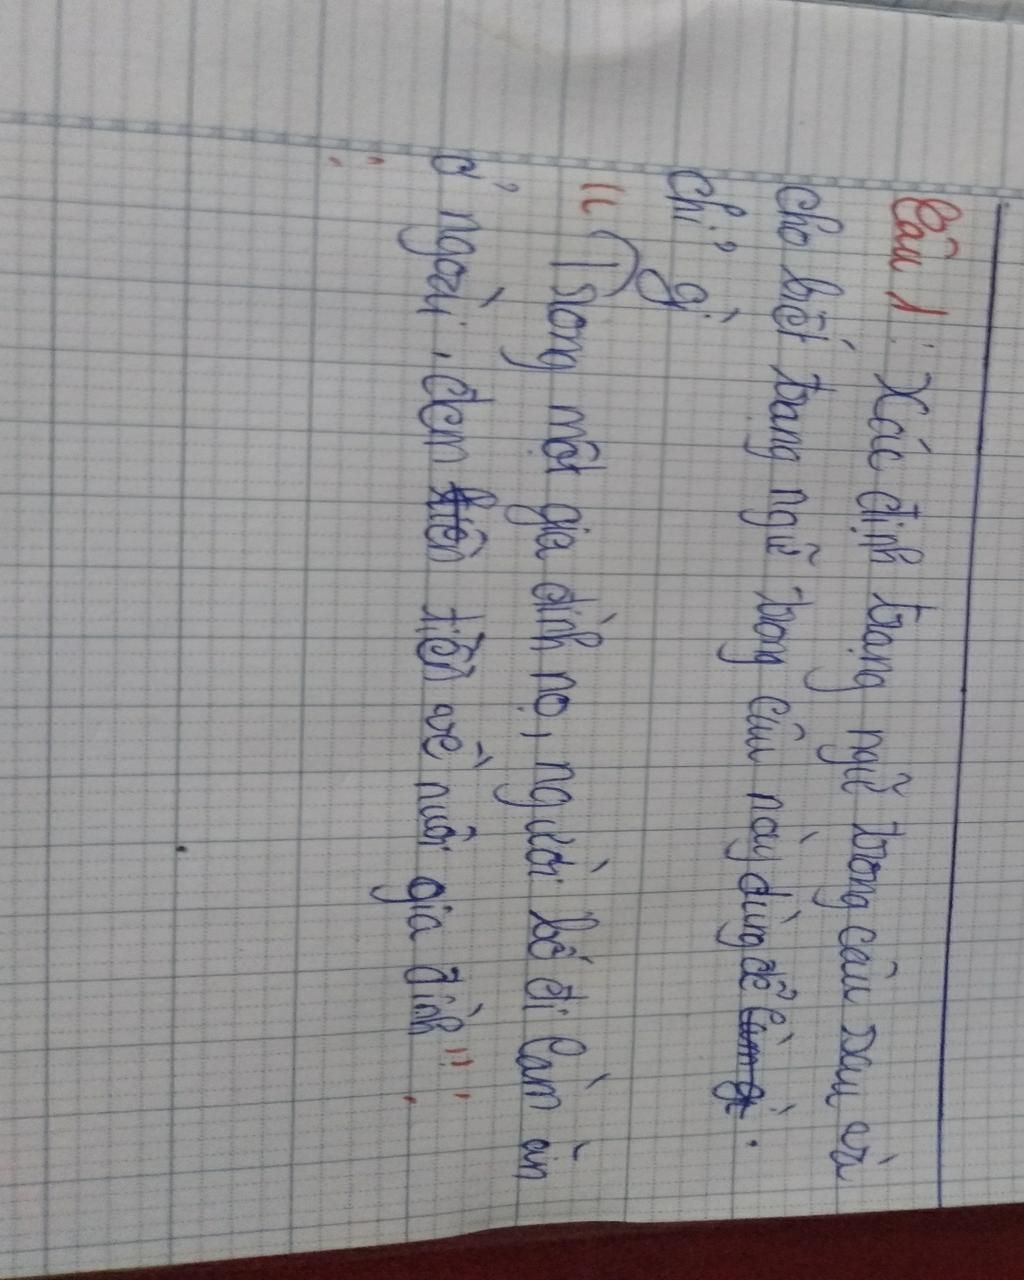 Câu 1: Xác định trạng ngữ trong câu sau và
cho biết trạng ngữ trong câu này dùng để làm gì.
chỉ gì
"Trong một gia đình nọ, người bố đi làm ăn
ở ngoài, đem tiền về nuôi gia đình".